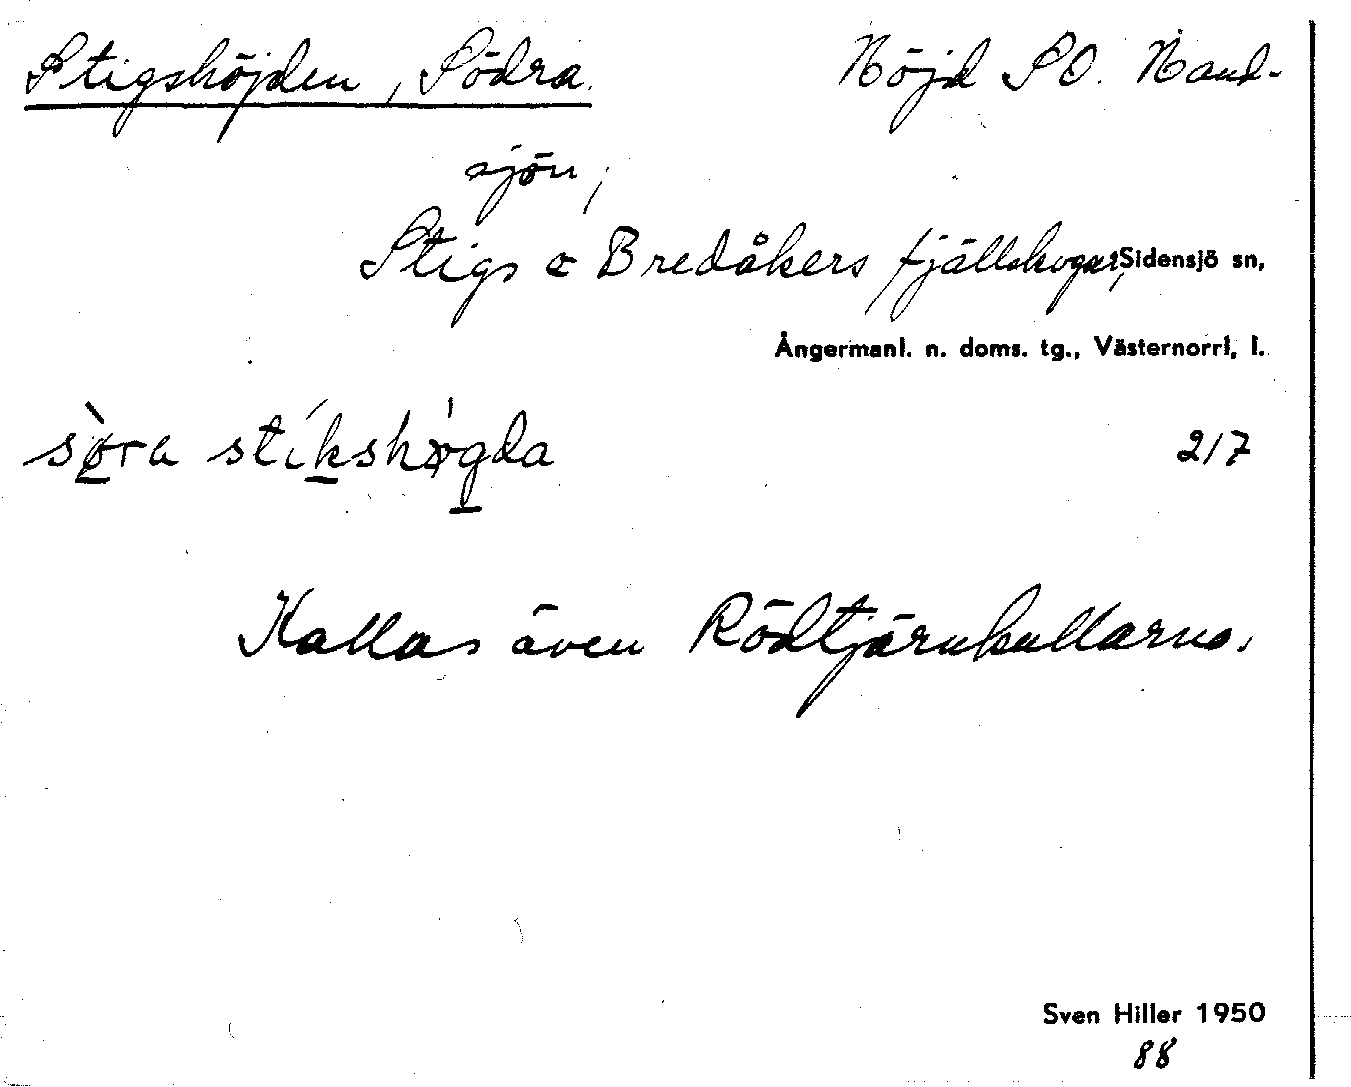 Stigshöjden, Södra. Höjd SO. Hand-
sjön,
Stigs o Bredåkers fjällskogar, Sidensjö sn,
Ångermanl. n. doms. tg., Västernorrl, l.
sø̀ra stíkshø̍gda 217
Kallas även Rödtjärnkullarna.
Sven Hiller 1950
88